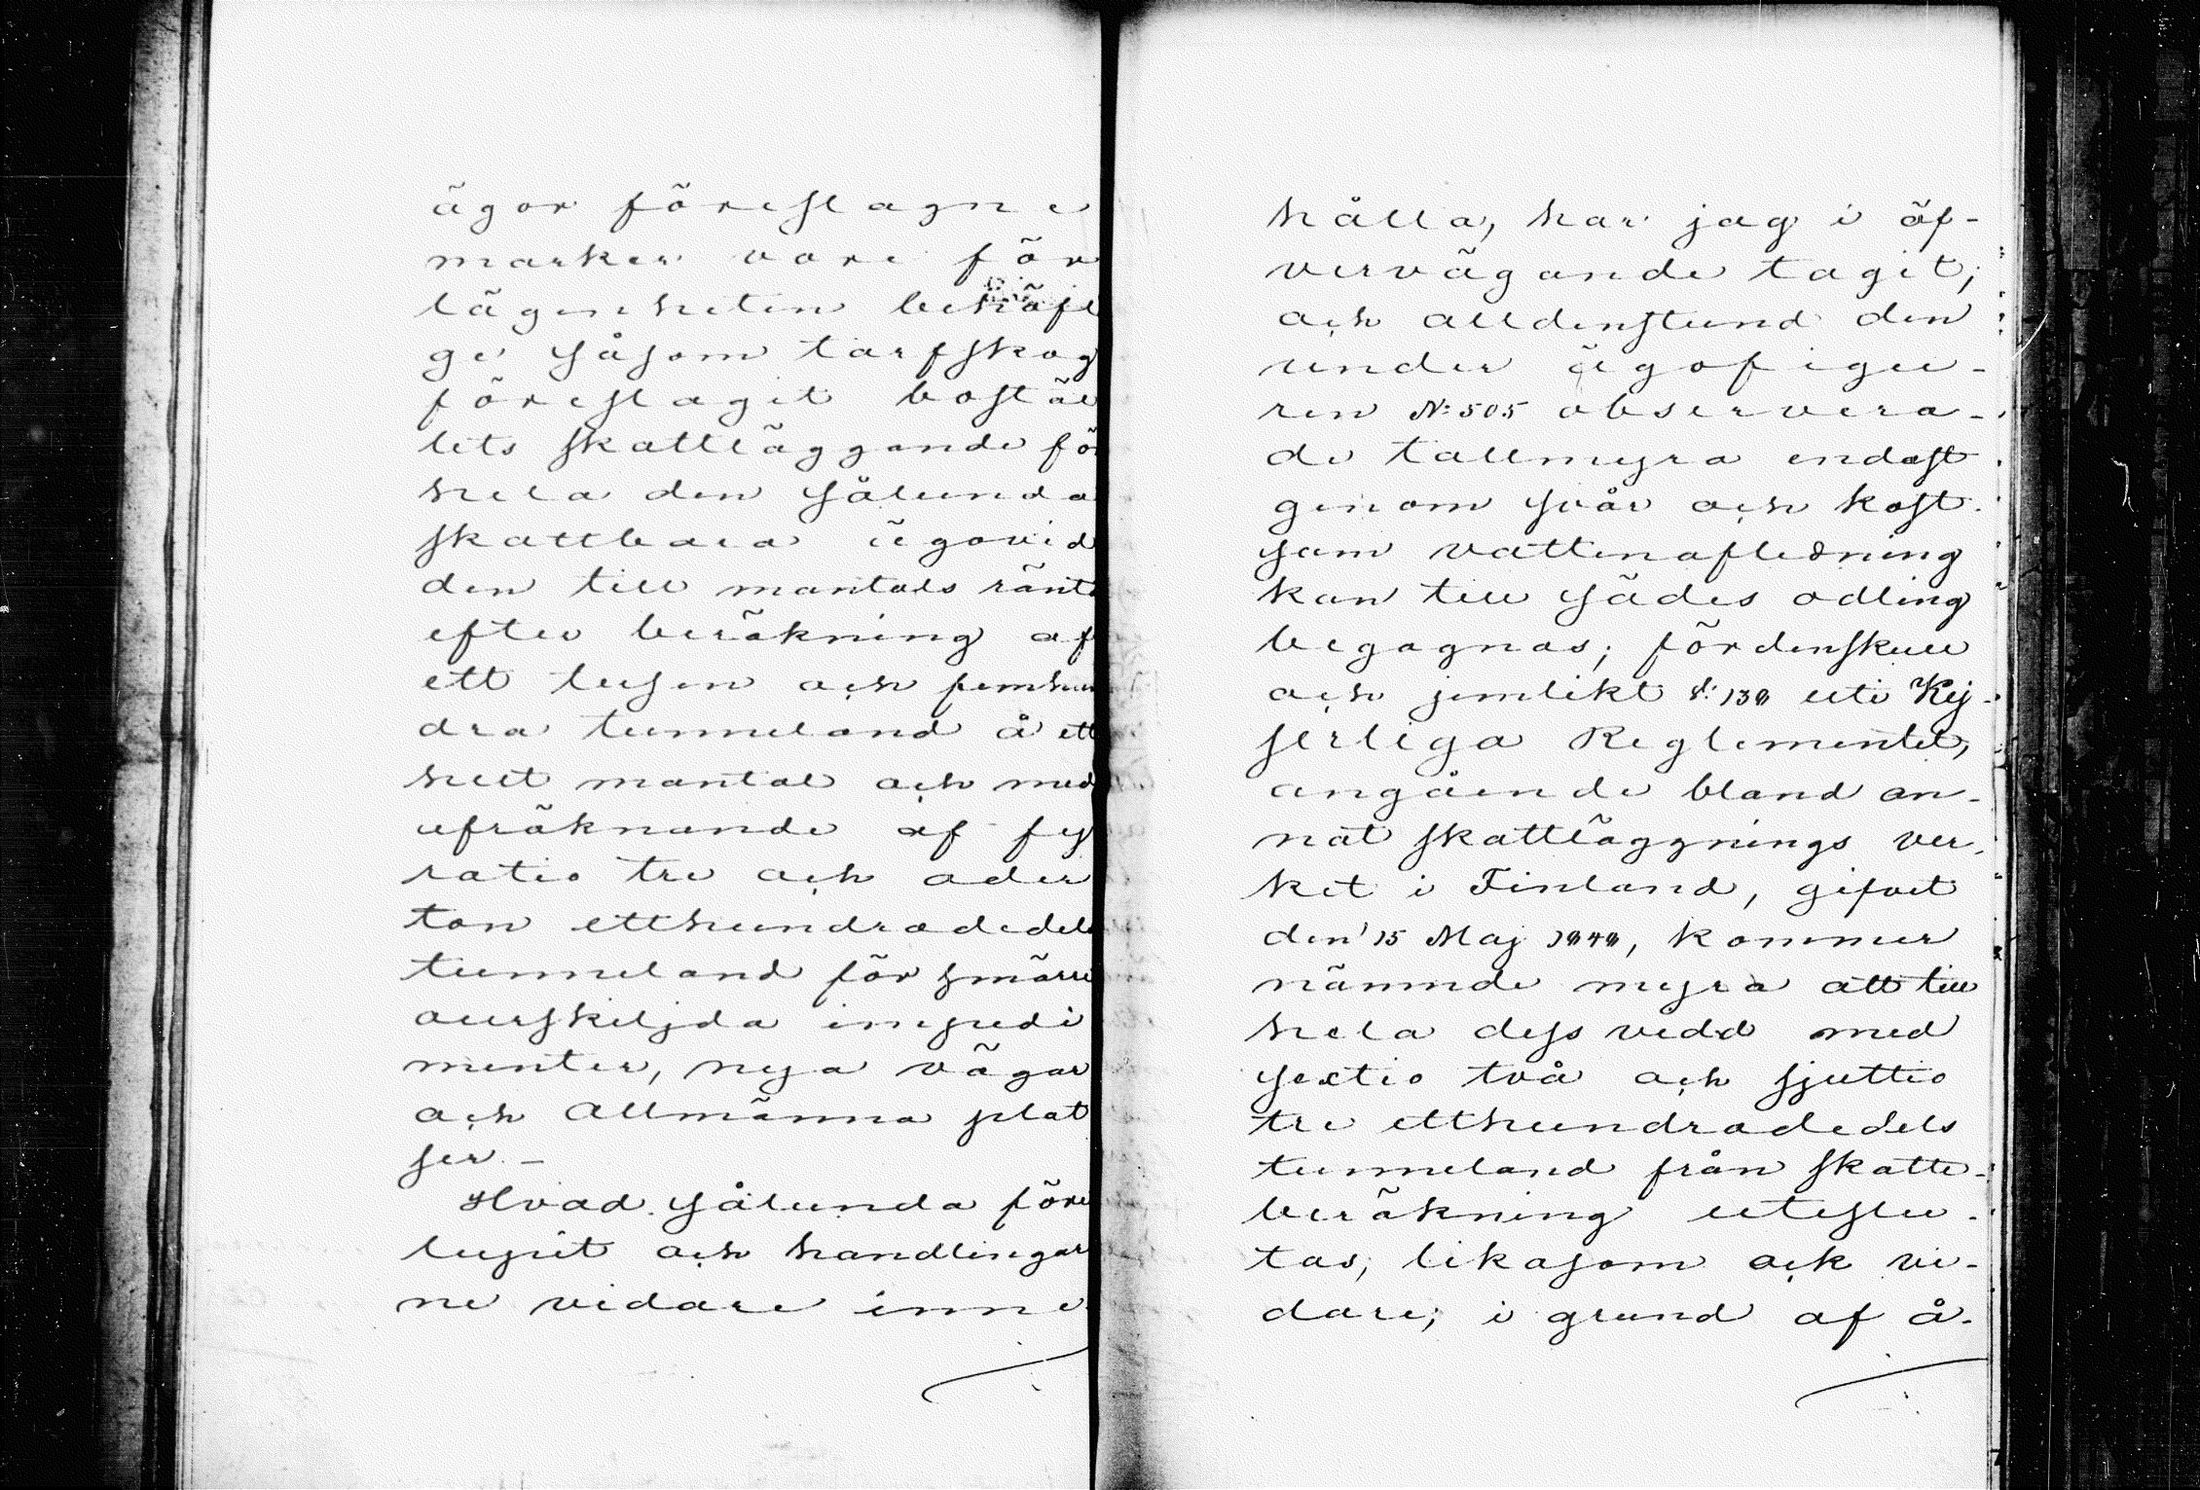 ägor föreslagne
marker vore för
lägenheten behöfl
ge såsom tarfskog
föreslaget bostäl
lets skattläggande för
hela den sålunda
skattbara ägovid
den till mantals ränta
efter beräkning af
ett tusen och femhun
dra tunneland å ett
helt mantal och med
afräknande af fyr
ratio tre och ader
ton etthundradedels
tunneland för smärre
aurskiljda impedi
menter, nya vägar
och allmänna plat
ser. –
Hvad sålunda före
lupit och handlingar
ne vidare inne
hålla, har jag i öf-
vervägande tagit;
och alldenstund den
under ägofigu-
ren N:505 observera-
de tallmyra endast
genom svår och kost-
sam vattenafledning
kan till sädes odling
begagnas; fördenskull
och jemlikt §:138 uti Kej-
serliga Reglementet,
angående bland an-
nat skattläggnings ver-
ket i Finland, gifvet
den 15 Maj 1848, kommer
nämnde myra att till
hela dess vidd med
sextio två och sjuttio
tre etthundradedels
tunneland från skatte-
beräkning uteslu-
tas, likasom ock vi-
dare, i grund af å-